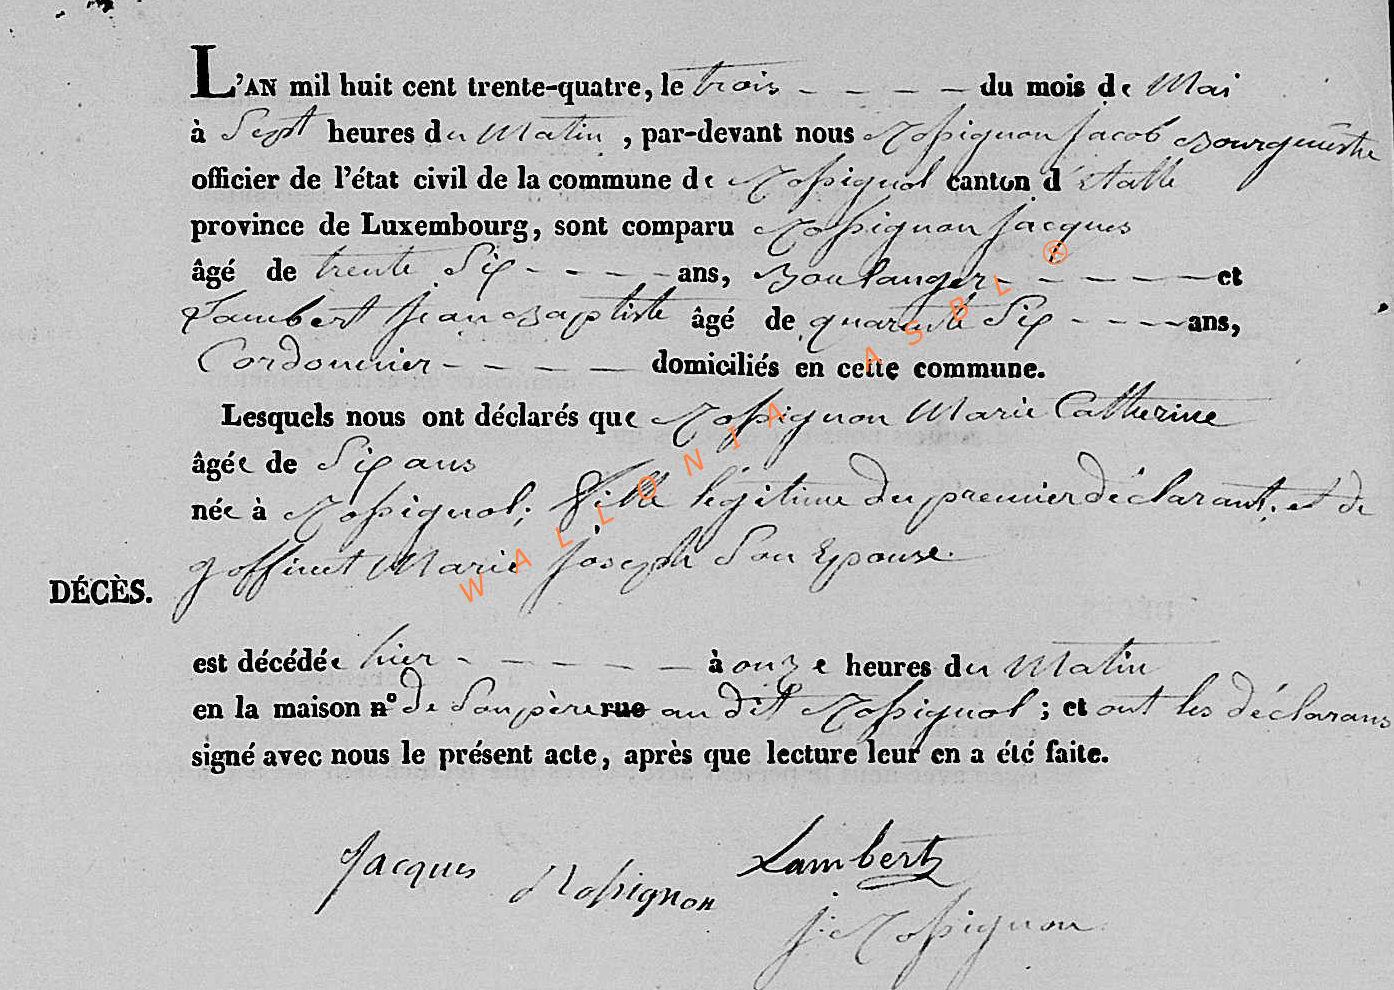 L'AN mil huit cent trente-quatre, le trois - - - - du mois de Mai
à Sept heures du Matin, par-devant nous Rossignon Jacob Bourguestre
officier de l'état civil de la commune de Rossignol canton d'Etalle
province de Luxembourg, sont comparu Rossignon Jacques
âgé de trente Six - - - - ans, Boulanger - - - - - et
Lambert Jean Baptiste âgé de quarante Six - - - - ans,
Cordonnier - - - - - domiciliés en cette commune.
Lesquels nous ont déclarés que Rossignon Marie Catherine
âgée de Six ans
née à Rossignol; fille légitime du premier déclarant; et de
goffinet Marie Joseph Son Epouse.
DÉCÈS.
est décédée hier - - - - - - à onze heures du Matin
en la maison n° de Son père rue au dit Rossignol; et ont les déclarans
signé avec nous le présent acte, après que lecture leur en a été faite.
Jacques Rossignon Lambert
J. Rossignon
WALLONIA ASBL ®